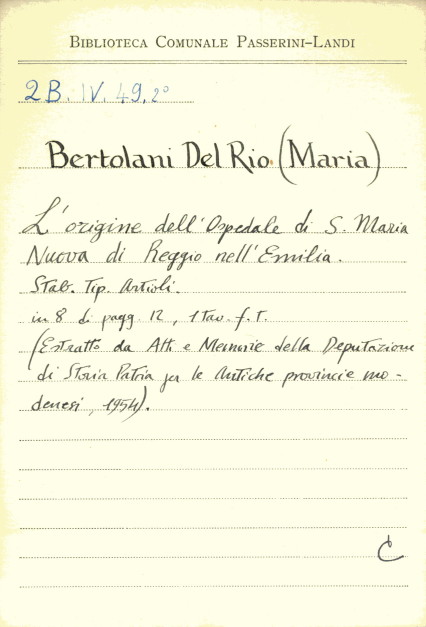 BIBLIOTECA COMUNALE PASSERINI-LANDI
2B. IV. 49, 2°
Bertolani Del Rio (Maria)
L'origine dell'Ospedale di S. Maria
Nuova di Reggio nell'Emilia.
Stab. Tip. Artioli.
in 8 di pagg. 12, 1 tav. f. t.
(Estratto da Atti e Memorie della Deputazione
di Storia Patria per le Antiche provincie mo-
denesi, 1954).
C